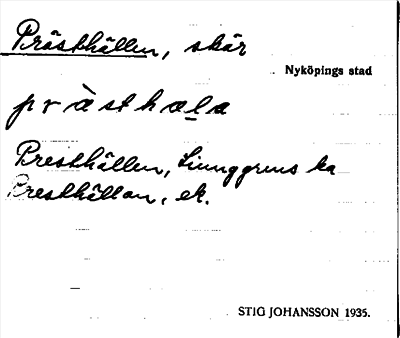 Prästhällen, skär
Nyköpings stad
pràsthæla
Presthällen, Liunggrens ka
Presthällan, ek.
STIG JOHANSSON 1935.